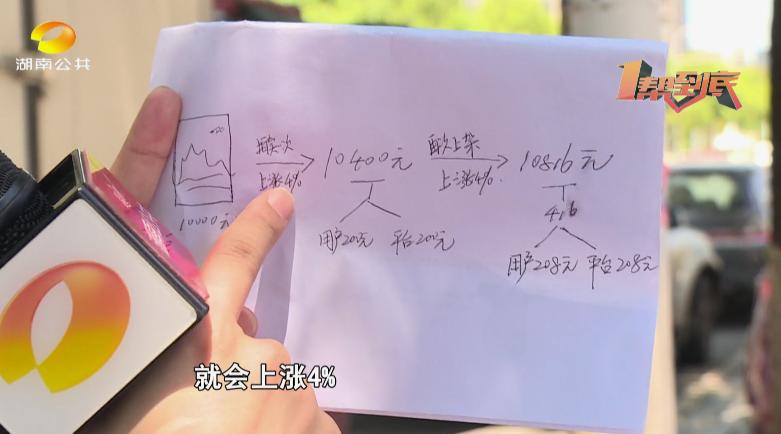 湖南公共
1帮到底
10000元
上涨4%
10400元
用户200元 平台200元
再次上架
上涨4%
10816元
416
用户208元 平台208元
就会上涨4%